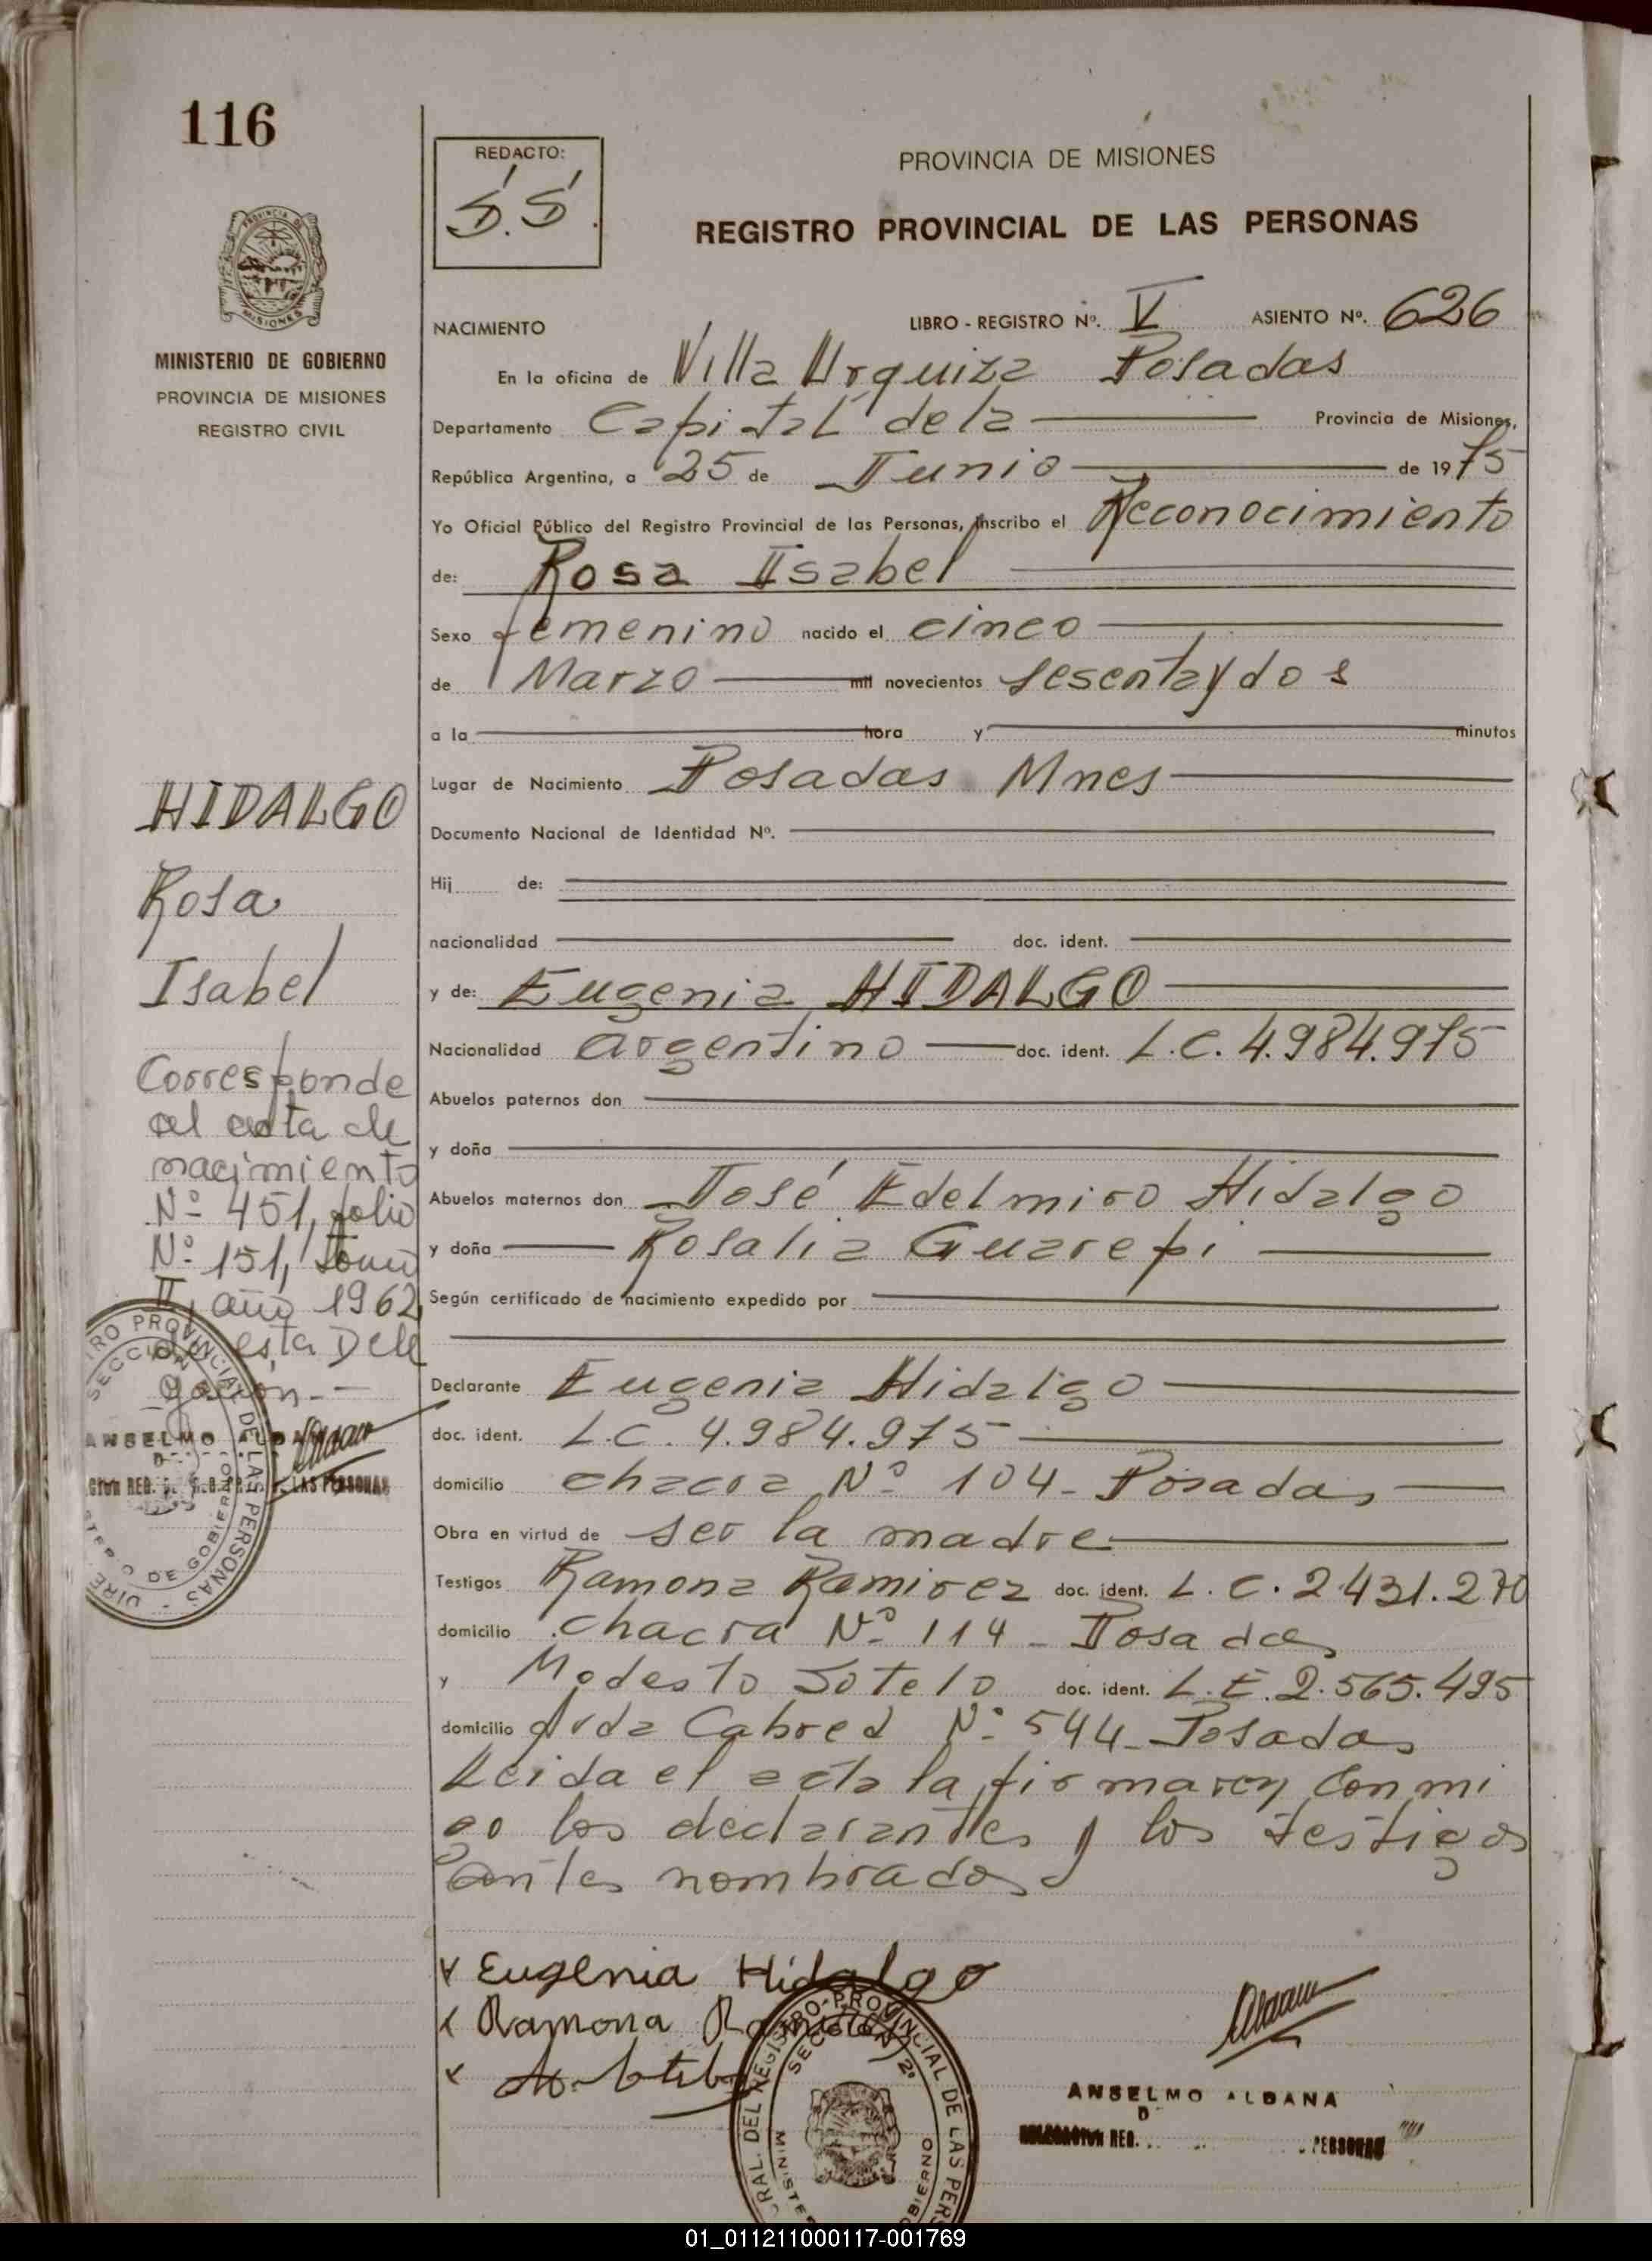 116
REDACTO:
S.S.
PROVINCIA DE MISIONES
REGISTRO PROVINCIAL DE LAS PERSONAS
PROVINCIA DE
MISIONES
MINISTERIO DE GOBIERNO
PROVINCIA DE MISIONES
REGISTRO CIVIL
NACIMIENTO LIBRO - REGISTRO Nº. V ASIENTO Nº. 626
En la oficina de Villa Urquiza Posadas
Departamento Capital de la Provincia de Misiones,
República Argentina, a 25 de Junio de 1975
Yo Oficial Público del Registro Provincial de las Personas, inscribo el Reconocimiento
de: Rosa Isabel
Sexo femenino nacido el cinco
de Marzo mil novecientos sesenta y dos
a la hora y minutos
Lugar de Nacimiento Posadas Mnes
Documento Nacional de Identidad Nº.
Hij de:
nacionalidad doc. ident.
y de: Eugenia HIDALGO
Nacionalidad argentino doc. ident. L.C. 4.984.975
Abuelos paternos don
y doña
Abuelos maternos don José Edelmiro Hidalgo
y doña Rosalia Guarepi
Según certificado de nacimiento expedido por
Declarante Eugenia Hidalgo
doc. ident. L.C. 4.984.975
domicilio chacra Nº 104 - Posadas
Obra en virtud de ser la madre
Testigos Ramona Ramirez doc. ident. L.C. 2.431.270
domicilio chacra Nº 114 - Posadas
y Modesto Sotelo doc. ident. L.E. 2.565.495
domicilio Avda Cabred Nº 544 - Posadas
Leida el acta la firmaron conmi
go los declarantes y los testigos
antes nombrados
HIDALGO
Rosa
Isabel
Corresponde
al acta de
nacimiento
Nº 451, folio
Nº 151, Tomo
II, año 1962
de esta Dele
gación.-
RO PROVINCIAL DE LAS PERSONAS
SECCION
DE GOBIERNO
ANSELMO ALDANA
LAS PERSONAS
Eugenia Hidalgo
Ramona Ramirez
RAL. DEL REGISTRO PROVINCIAL DE LAS PERS
SECCION 2º
MINISTE
OBIERNO
ANSELMO ALDANA
DELEGACION REG. PERSONAS
01_011211000117-001769